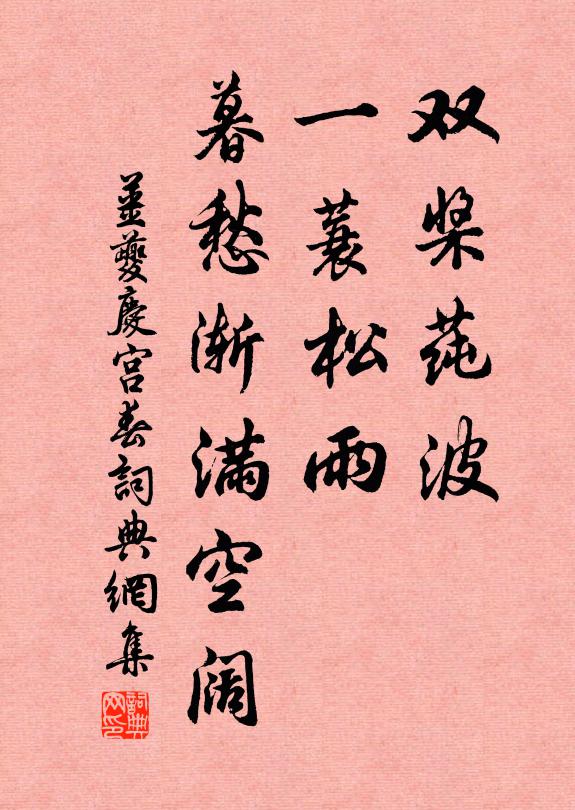 双桨莼波
一蓑松雨
暮愁渐满空阔
姜夔慶宫春詞典網集
詞典网印